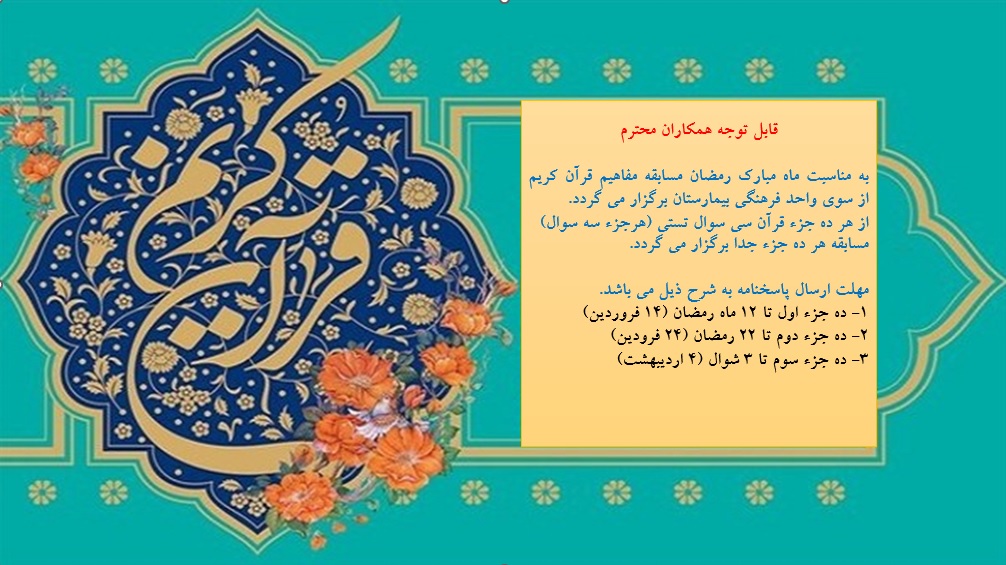 قرآن کریم
قابل توجه همکاران محترم
به مناسبت ماه مبارک رمضان مسابقه مفاهیم قرآن کریم
از سوی واحد فرهنگی بیمارستان برگزار می گردد.
از هر ده جزء قرآن سی سوال تستی (هرجزء سه سوال)
مسابقه هر ده جزء جدا برگزار می گردد.
مهلت ارسال پاسخنامه به شرح ذیل می باشد.
۱- ده جزء اول تا ۱۲ ماه رمضان (۱۴ فروردین)
۲- ده جزء دوم تا ۲۲ رمضان (۲۴ فرودین)
۳- ده جزء سوم تا ۳ شوال (۴ اردیبهشت)